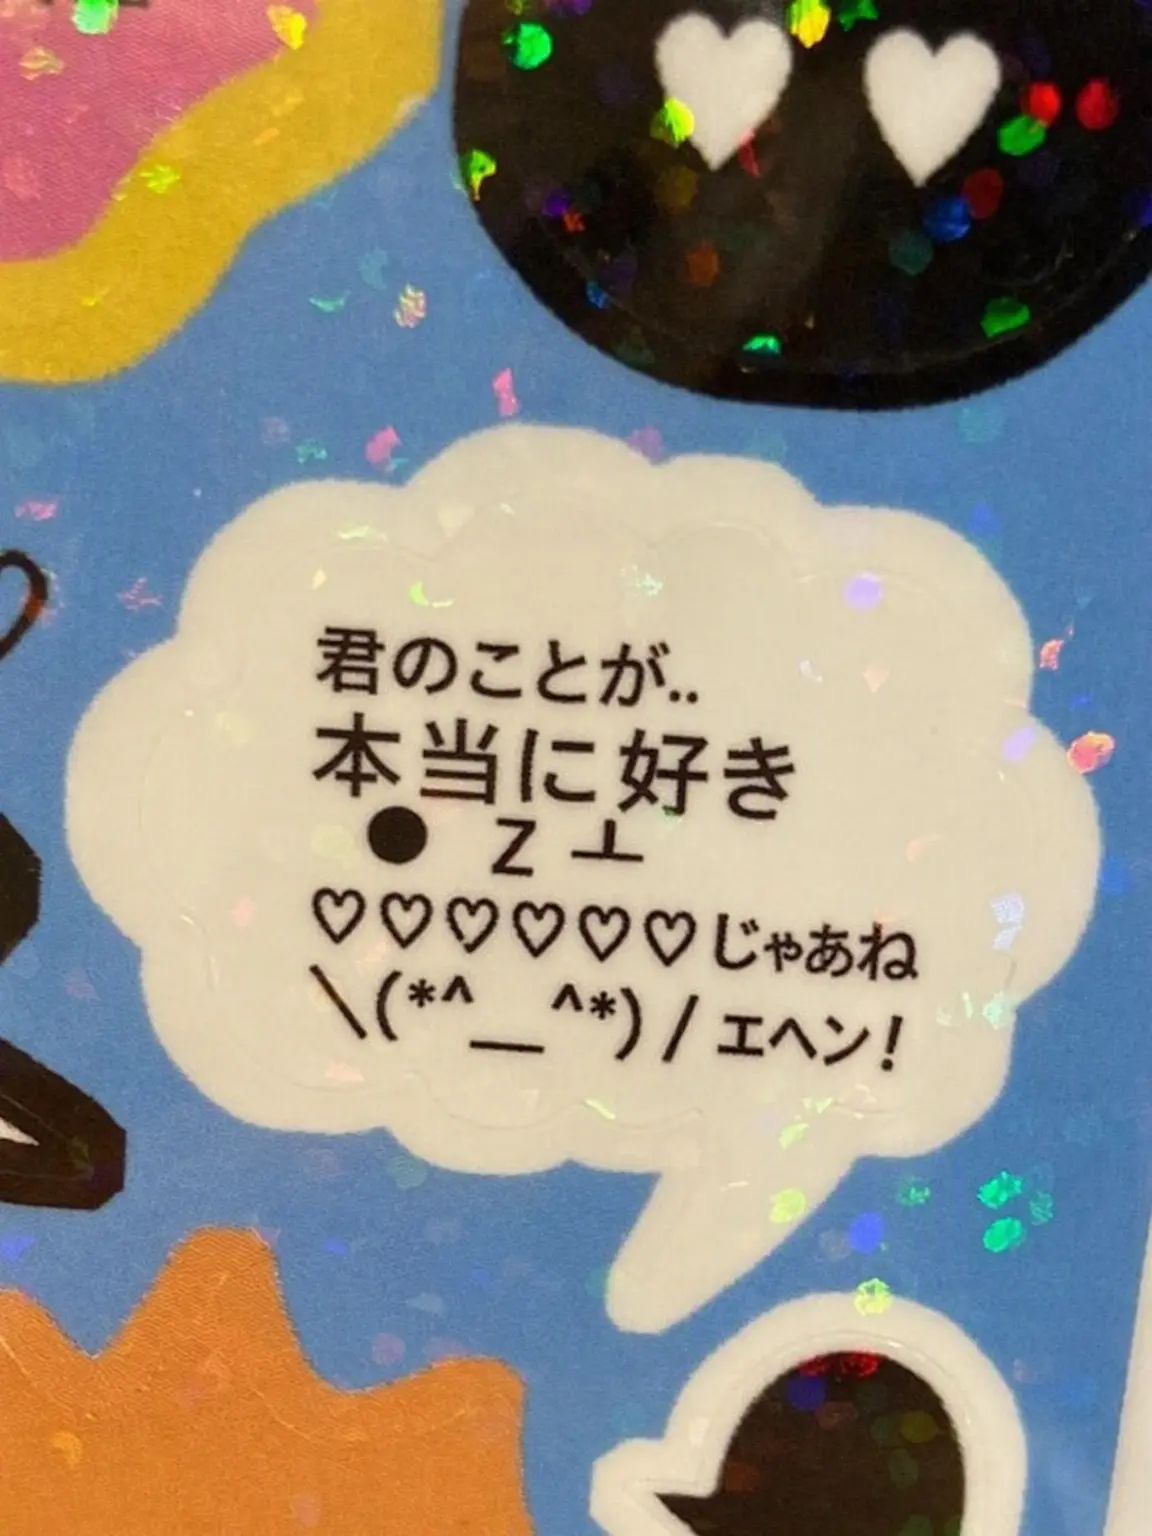 君のことが..
本当に好き
● Z ㅗ
♡♡♡♡♡♡じゃあね
\(*^__^*) / エヘン!